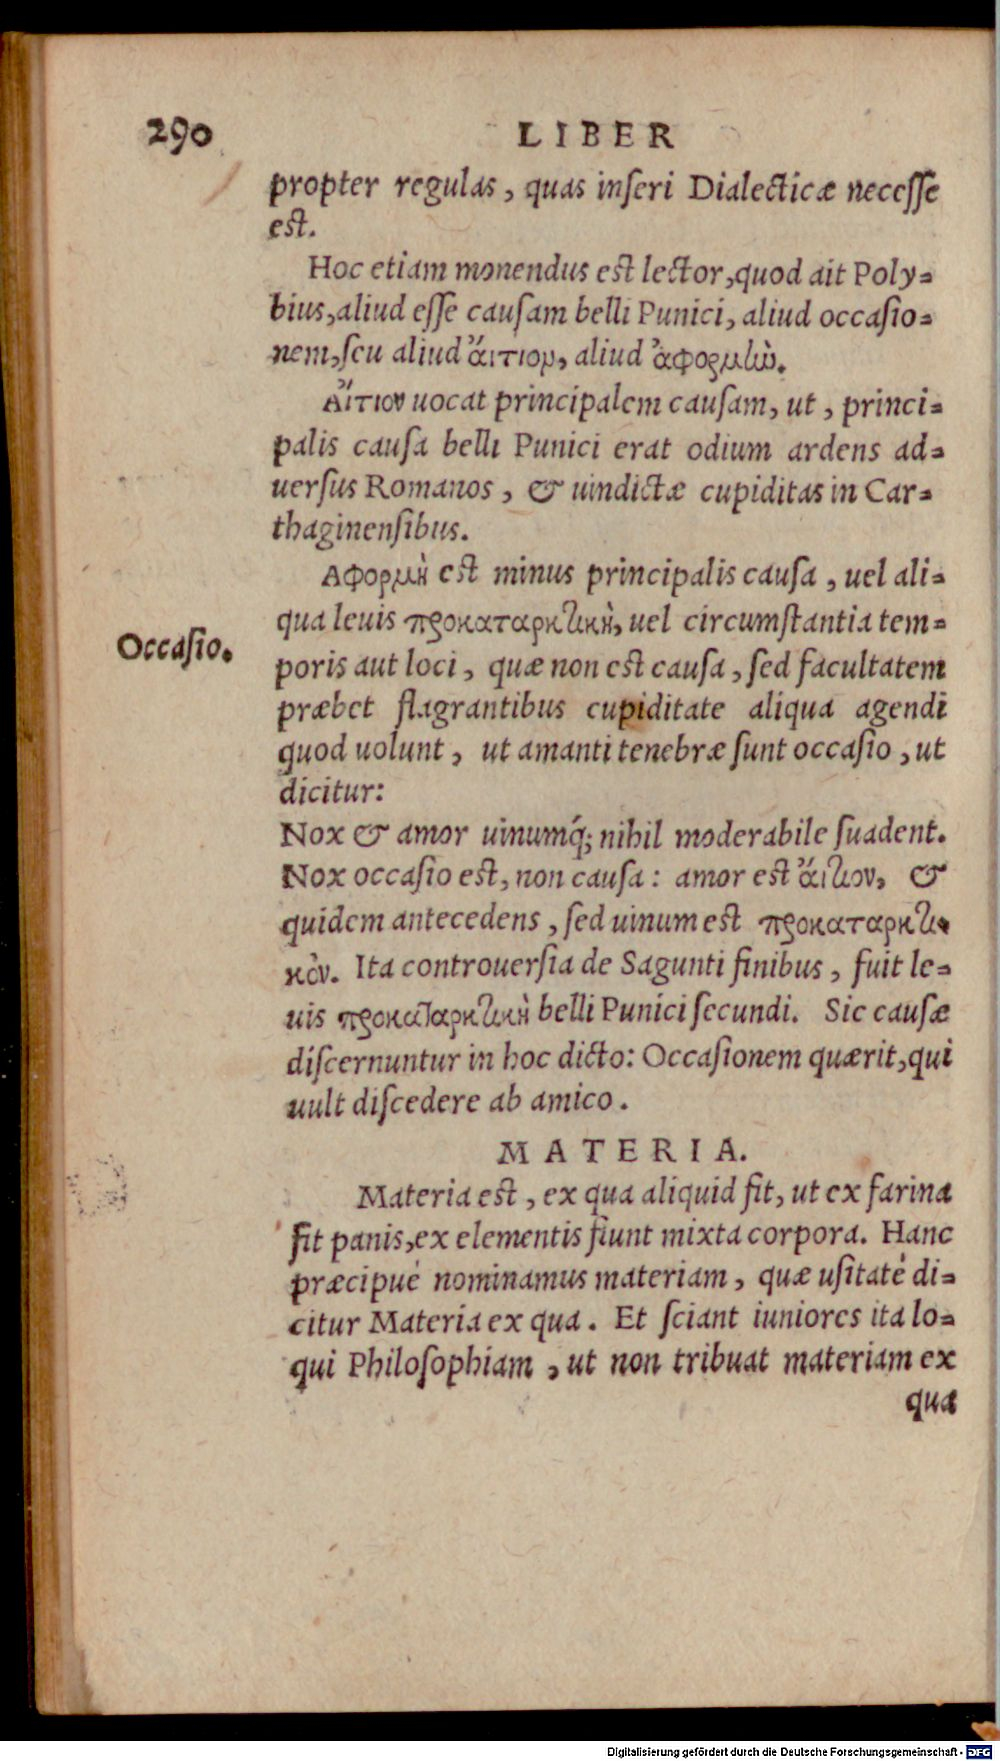 290 LIBER
propter regulas, quas inseri Dialecticæ necesse
est.
Hoc etiam monendus est lector, quod ait Poly=
bius, aliud esse causam belli Punici, aliud occasio=
nem, seu aliud ἄιτιον, aliud ἀφορμὼ.
Αἴτιον uocat principalem causam, ut, princi=
palis causa belli Punici erat odium ardens ad=
uersus Romanos, & uindictæ cupiditas in Car=
thaginensibus.
Αφορμὴ est minus principalis causa, uel ali=
qua leuis προκαταρκτικὴ, uel circumstantia tem=
Occasio.
poris aut loci, quæ non est causa, sed facultatem
præbet flagrantibus cupiditate aliqua agendi
quod uolunt, ut amanti tenebræ sunt occasio, ut
dicitur:
Nox & amor uinumq́; nihil moderabile suadent.
Nox occasio est, non causa: amor est ἄιτιον, &
quidem antecedens, sed uinum est προκαταρκτι-
κὸν. Ita controuersia de Sagunti finibus, fuit le=
uis προκαταρκτικὴ belli Punici secundi. Sic causæ
discernuntur in hoc dicto: Occasionem quærit, qui
uult discedere ab amico.
MATERIA.
Materia est, ex qua aliquid fit, ut ex farina
fit panis, ex elementis fiunt mixta corpora. Hanc
præcipuè nominamus materiam, quæ usitatè di=
citur Materia ex qua. Et sciant iuniores ita lo=
qui Philosophiam, ut non tribuat materiam ex
qua
Digitalisierung gefördert durch die Deutsche Forschungsgemeinschaft - DFG